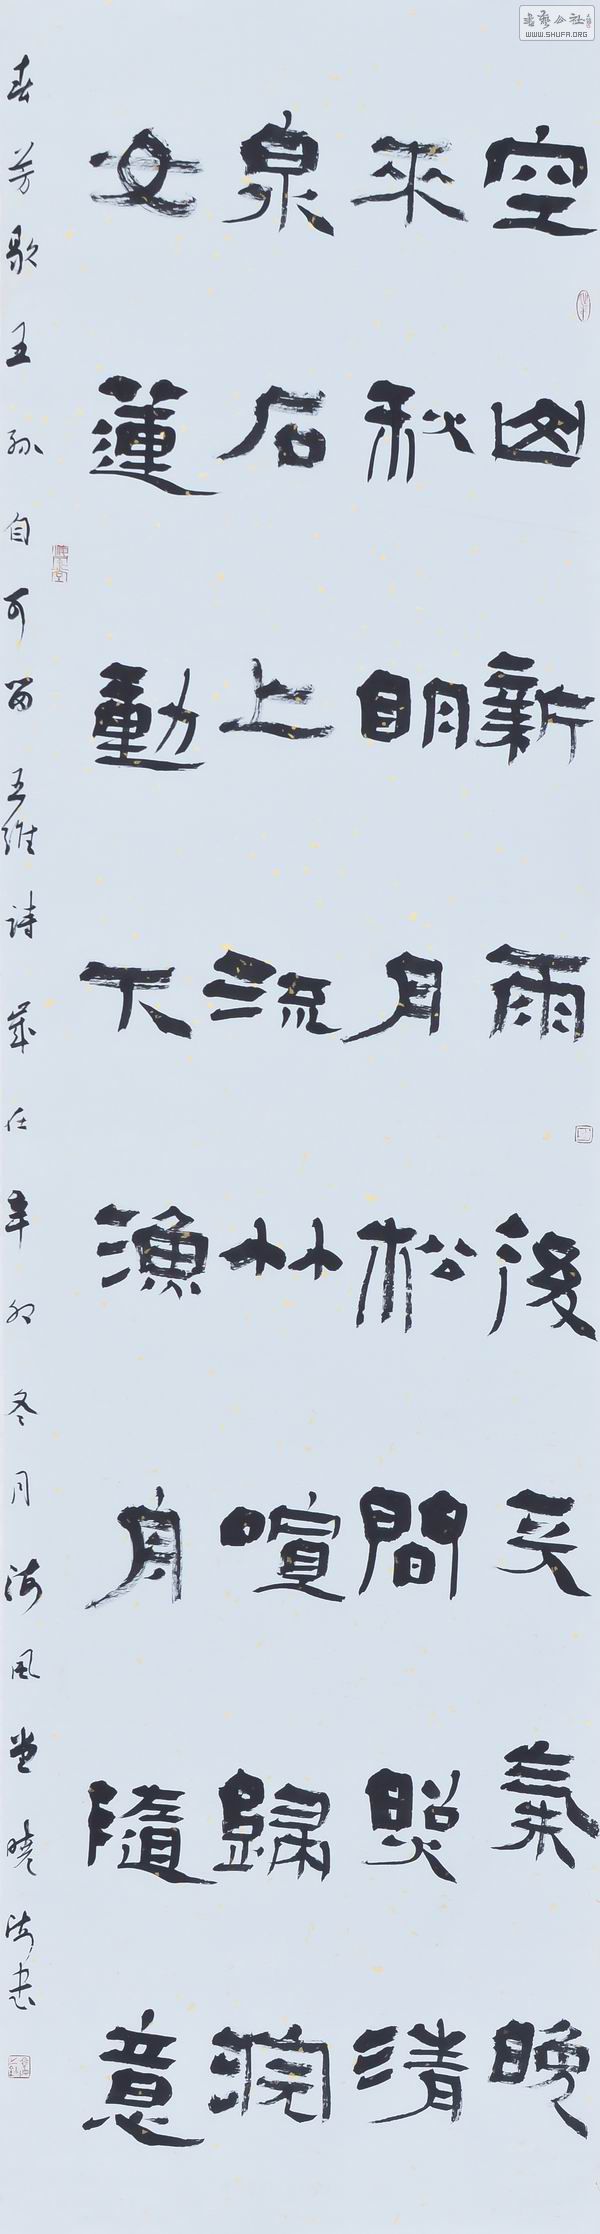 書藝公社
WWW.SHUFA.ORG
空山新雨後天氣晚
來秋明月松間照清
泉石上流竹喧歸浣
女蓮動下漁舟隨意
春芳歇王孫自可留王維詩歲在辛卯冬月海風堂曉海書